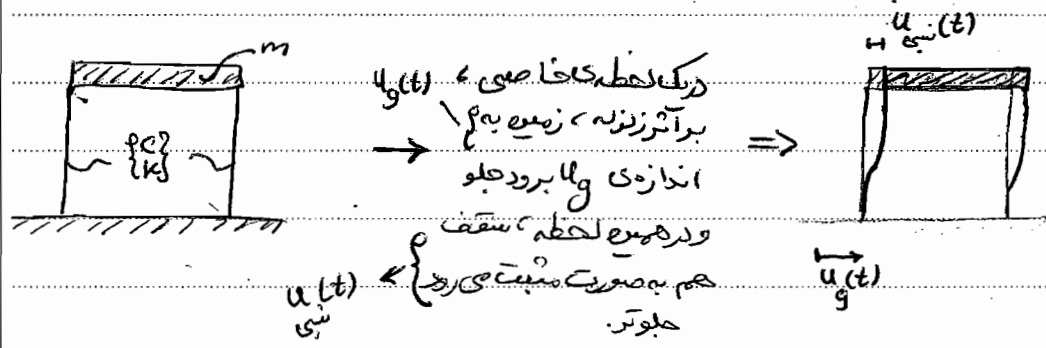 m
{c}
{k}
u_g(t)
→
در یک لحظه‌ی خاصی،
بر اثر زلزله، زمین به
اندازه‌ی u_g برود جلو
و در همین لحظه، سقف
هم به صورت مثبت می‌رود
جلوتر.
u نسبی (t)
⇒
u نسبی (t)
u_g(t)